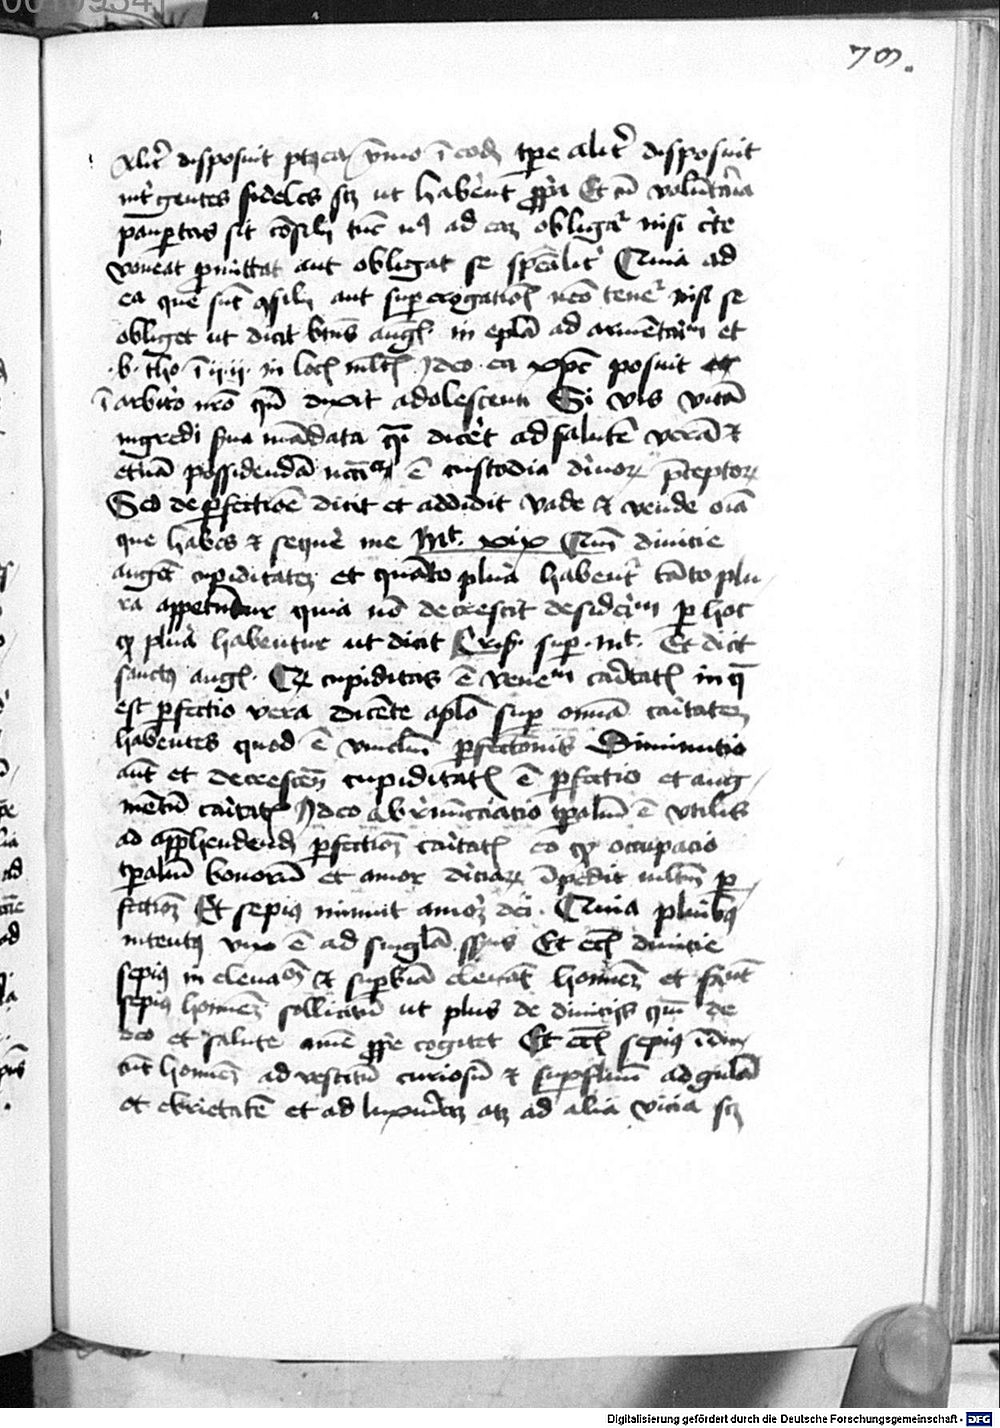 79.
Alit' disposuit ptqea vmo ī eod tpe alit' disposuit
int' gentes fideles scz ut habe'nt ppa Et cū volūta'ia
paup'tas sit cōsilij tūc nō ad eaz obligat' nisi c'te
voueat p'mittat aut obligat se spēalit' Quia ad
ea que sūt cōsilij aut sup erogatiōis nēo tenet' nisi se
obliget ut dicit btūs aug' in epla ad armētariū et
.b. tho ī ij.ij. in locis mltis Ideo ea xp̄c posuit
ī arbit'o nr̄o qn̄ dixit adolescenti Si vis vitā
ingredi s'ua mādata q̄i dice't ad salutē verā &
et'nā possidendā nccria ē custodia diuinor' p̄ceptor'
Sed de p'fectione dicit et addidit vade & vende oīa
que habes & seque'e me Mt. xix Cum diuicie
augēt cupiditatez et quāto plura habent' tāto plu
ra appetuntur quia nō decrescit desideriū p hoc
q' plura habentur ut dicit Cris. sup. Mt. Et dicit
sanctus aug'. Q' cupiditas ē venenū caritatis in q̄
est p'fectio vera dicente aplo sup omnia caritatez
habentes quod ē vinclm̄ p'fectionis Diminutio
aūt et decrescen cupiditatis ē p'fectio et aug
mentū caritatis Ideo abrenūcciatio tpaliū ē vtilis
ad apphendendā p'fectionez caritatis eo q' occupacio
tpaliū bonorū et amor diuiciar' īpedit mltm̄ p'
fectionez Et sepius minuit amorez dei. Quia pluribus
intentus mino ē ad singla sensus Et eciā diuicie
sepius in elenaōez & sup'biā eleuāt hominez et faciūt
sepius hominez sollicitū ut plus de diuitijs quā de
deo et salute anime pp'e cogitet Et eciā sepius īdu
cūt hominez ad vestitū curiosū & sup'fluū ad gulā
et ebrietatē et ad luxuriaz atz ad alia vicia scz
Digitalisierung gefördert durch die Deutsche Forschungsgemeinschaft - DFG